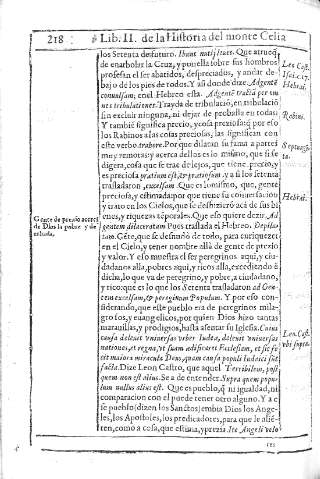 218 Lib. II. de la Historia del monte Celia
los Setenta de futuro. Ibunt nuntij leues. Que atrueq̃
de enarbolar la Cruz, y ponella sobre sus hombros
professan el ser abatidos, despreciados, y andar de-
bajo de los pies de todos. Y asi donde dize Ad gentẽ
conuulsam, en el Hebreo esta. Ad gentẽ tractã per om
nes tribulationes. Trayda de tribulació, en tribulació
sin excluir ninguna, ni dejar de probulla en todas.
Y tambiẽ significa precio, y cosa preciosa: q̃ por eso
los Rabinos a las cosas preciosas, las significan con
este verbo trahere. Por que dilatan su fama a partes
muy remotas: y acerca dellos es lo mismo, que si se
digera, cosa que se trae de lejos, que tiene precio, y
es preciosa
trasladaron
preciosa, y estimada: por que tiene su conuersacion
y trato en los Cielos, que se desposeyó acá de sus bi
enes, y riquezas tẽporales. Que eso quiere dezir. Ad
gentem dilaceratam Pues traslada el Hebreo. Depila-
tam. Gẽte, que se desnudó de todo, para enriquezer
en el Cielo, y tener nombre allá de gente de precio
y valor. Y eso muestra el ser peregrinos aqui, y ciu-
dadanos allá, pobres aqui, y ricos allá, excediendo é
dicha, lo que va de peregrino, y pobre, a ciudadano,
y rico: que es lo que los Setenta trasladaron ad Gen-
tem excelsam, & peregrinum Populum. Y por eso con-
siderando, que este pueblo era de peregrinos mila-
grosos, y euangelicos, por quien Dios hizo tantas
marauillas, y prodigios, hasta asentar su Iglesia. Cuius
causa deleuit vniuersas vrbes Iudea, deleuit vniuersas
nationes, et regna, vt suam ædificaret Ecclesiam, et sic fe
cit maiora miracula Deus, quam causa populi Iudaici sint
facta. Dize Leon Castro, que aquel Terribilem, post
quem non est alius. Se a de entender. Supra quem popu
lum nullus alius est. Que es pueblo, q̃ ni igualdad, ni
comparacion con el puede tener otro alguno. Y a e
se pueblo (dizen los Sanctos) embia Dios los Ange-
les, los Apostoles, los predicadores, para que le asié-
ten, como a cosa, que estima, y precia. Ite Angeli velo
Leo Cast.
Hebræi.
Rabini.
Septuagĩ-
ta.
Hebræi.
Gente de precio acerca
de Dios la pobre y de
Leo. Cast.
vbi supra.